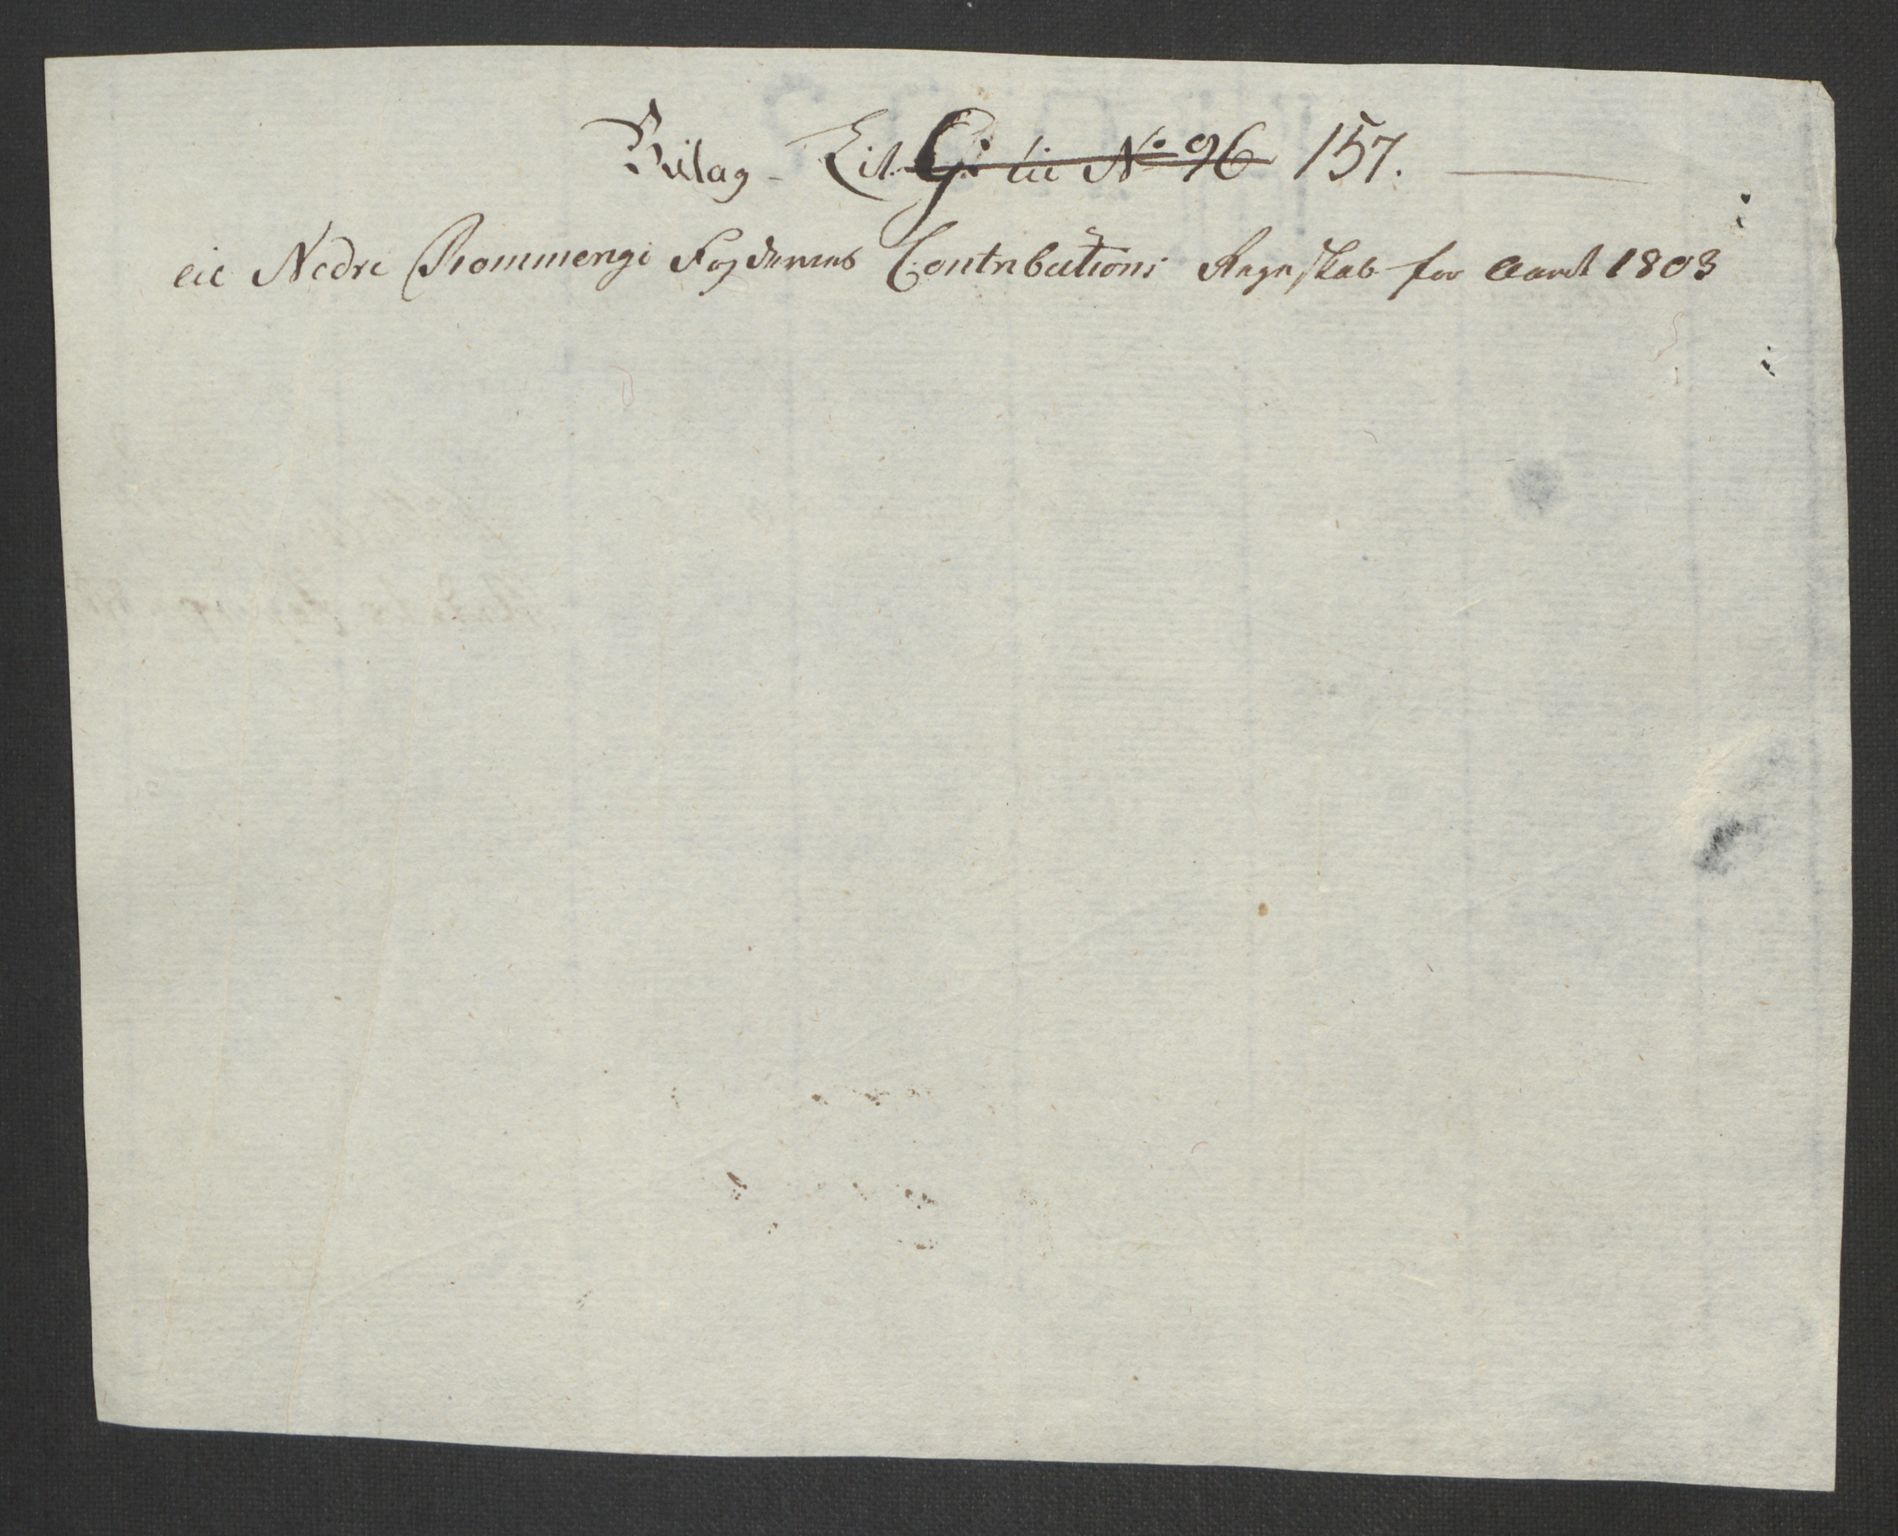 Bilag Lit. G. til No 96 157.
til Nedre Rommerigs Fogderies Contributions Regnskab for Aaret 1803